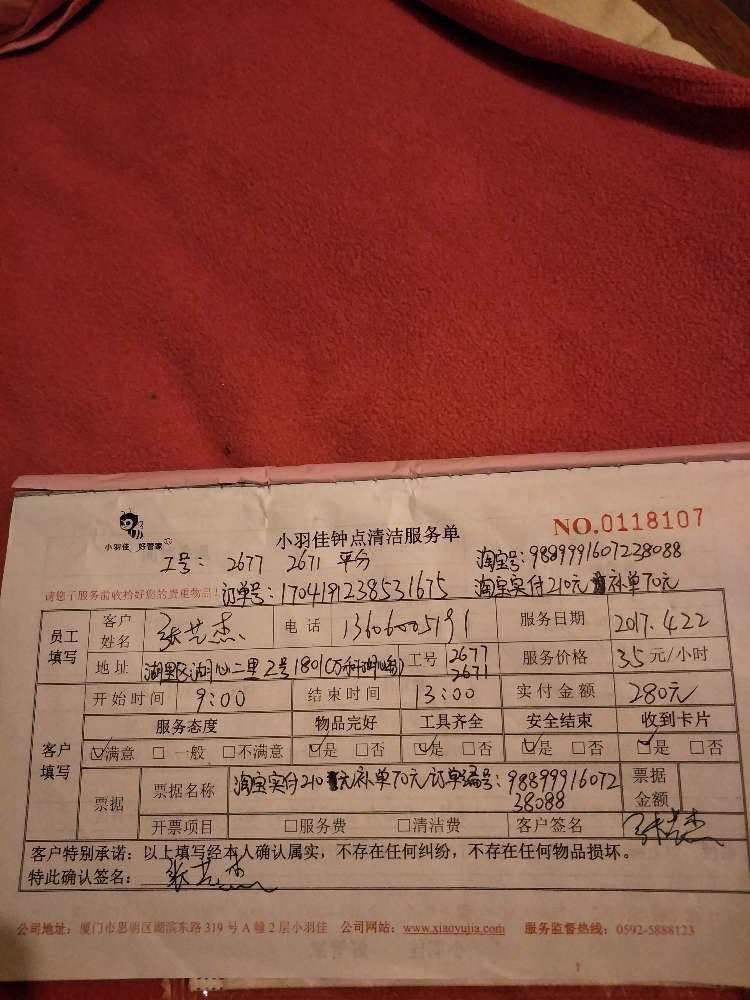 小羽佳 好管家
小羽佳钟点清洁服务单
NO.0118107
工号: 2677 2671 平分
淘宝号:9889991607238088
请您于服务前收拾好您的贵重物品!
订单号:1704191238531675
淘宝实付210元 补单70元
员工填写
客户姓名 张艺杰 电话 服务日期 2017.4.22
地址 工号 2677 2671 服务价格 35元/小时
客户填写
开始时间 9:00 结束时间 13:00 实付金额 280元
服务态度 物品完好 工具齐全 安全结束 收到卡片
☑满意 □一般 □不满意 ☑是 □否 ☑是 □否 ☑是 □否 ☑是 □否
票据 票据名称 淘宝实付210元补单70元订单编号:98899916072 票据金额
38088
开票项目 □服务费 □清洁费 客户签名 张艺杰
客户特别承诺:以上填写经本人确认属实,不存在任何纠纷,不存在任何物品损坏。
特此确认签名: 张艺杰
公司地址:厦门市思明区湖滨东路319号A幢2层小羽佳 公司网站:www.xiaoyujia.com 服务监督热线:0592-5888123